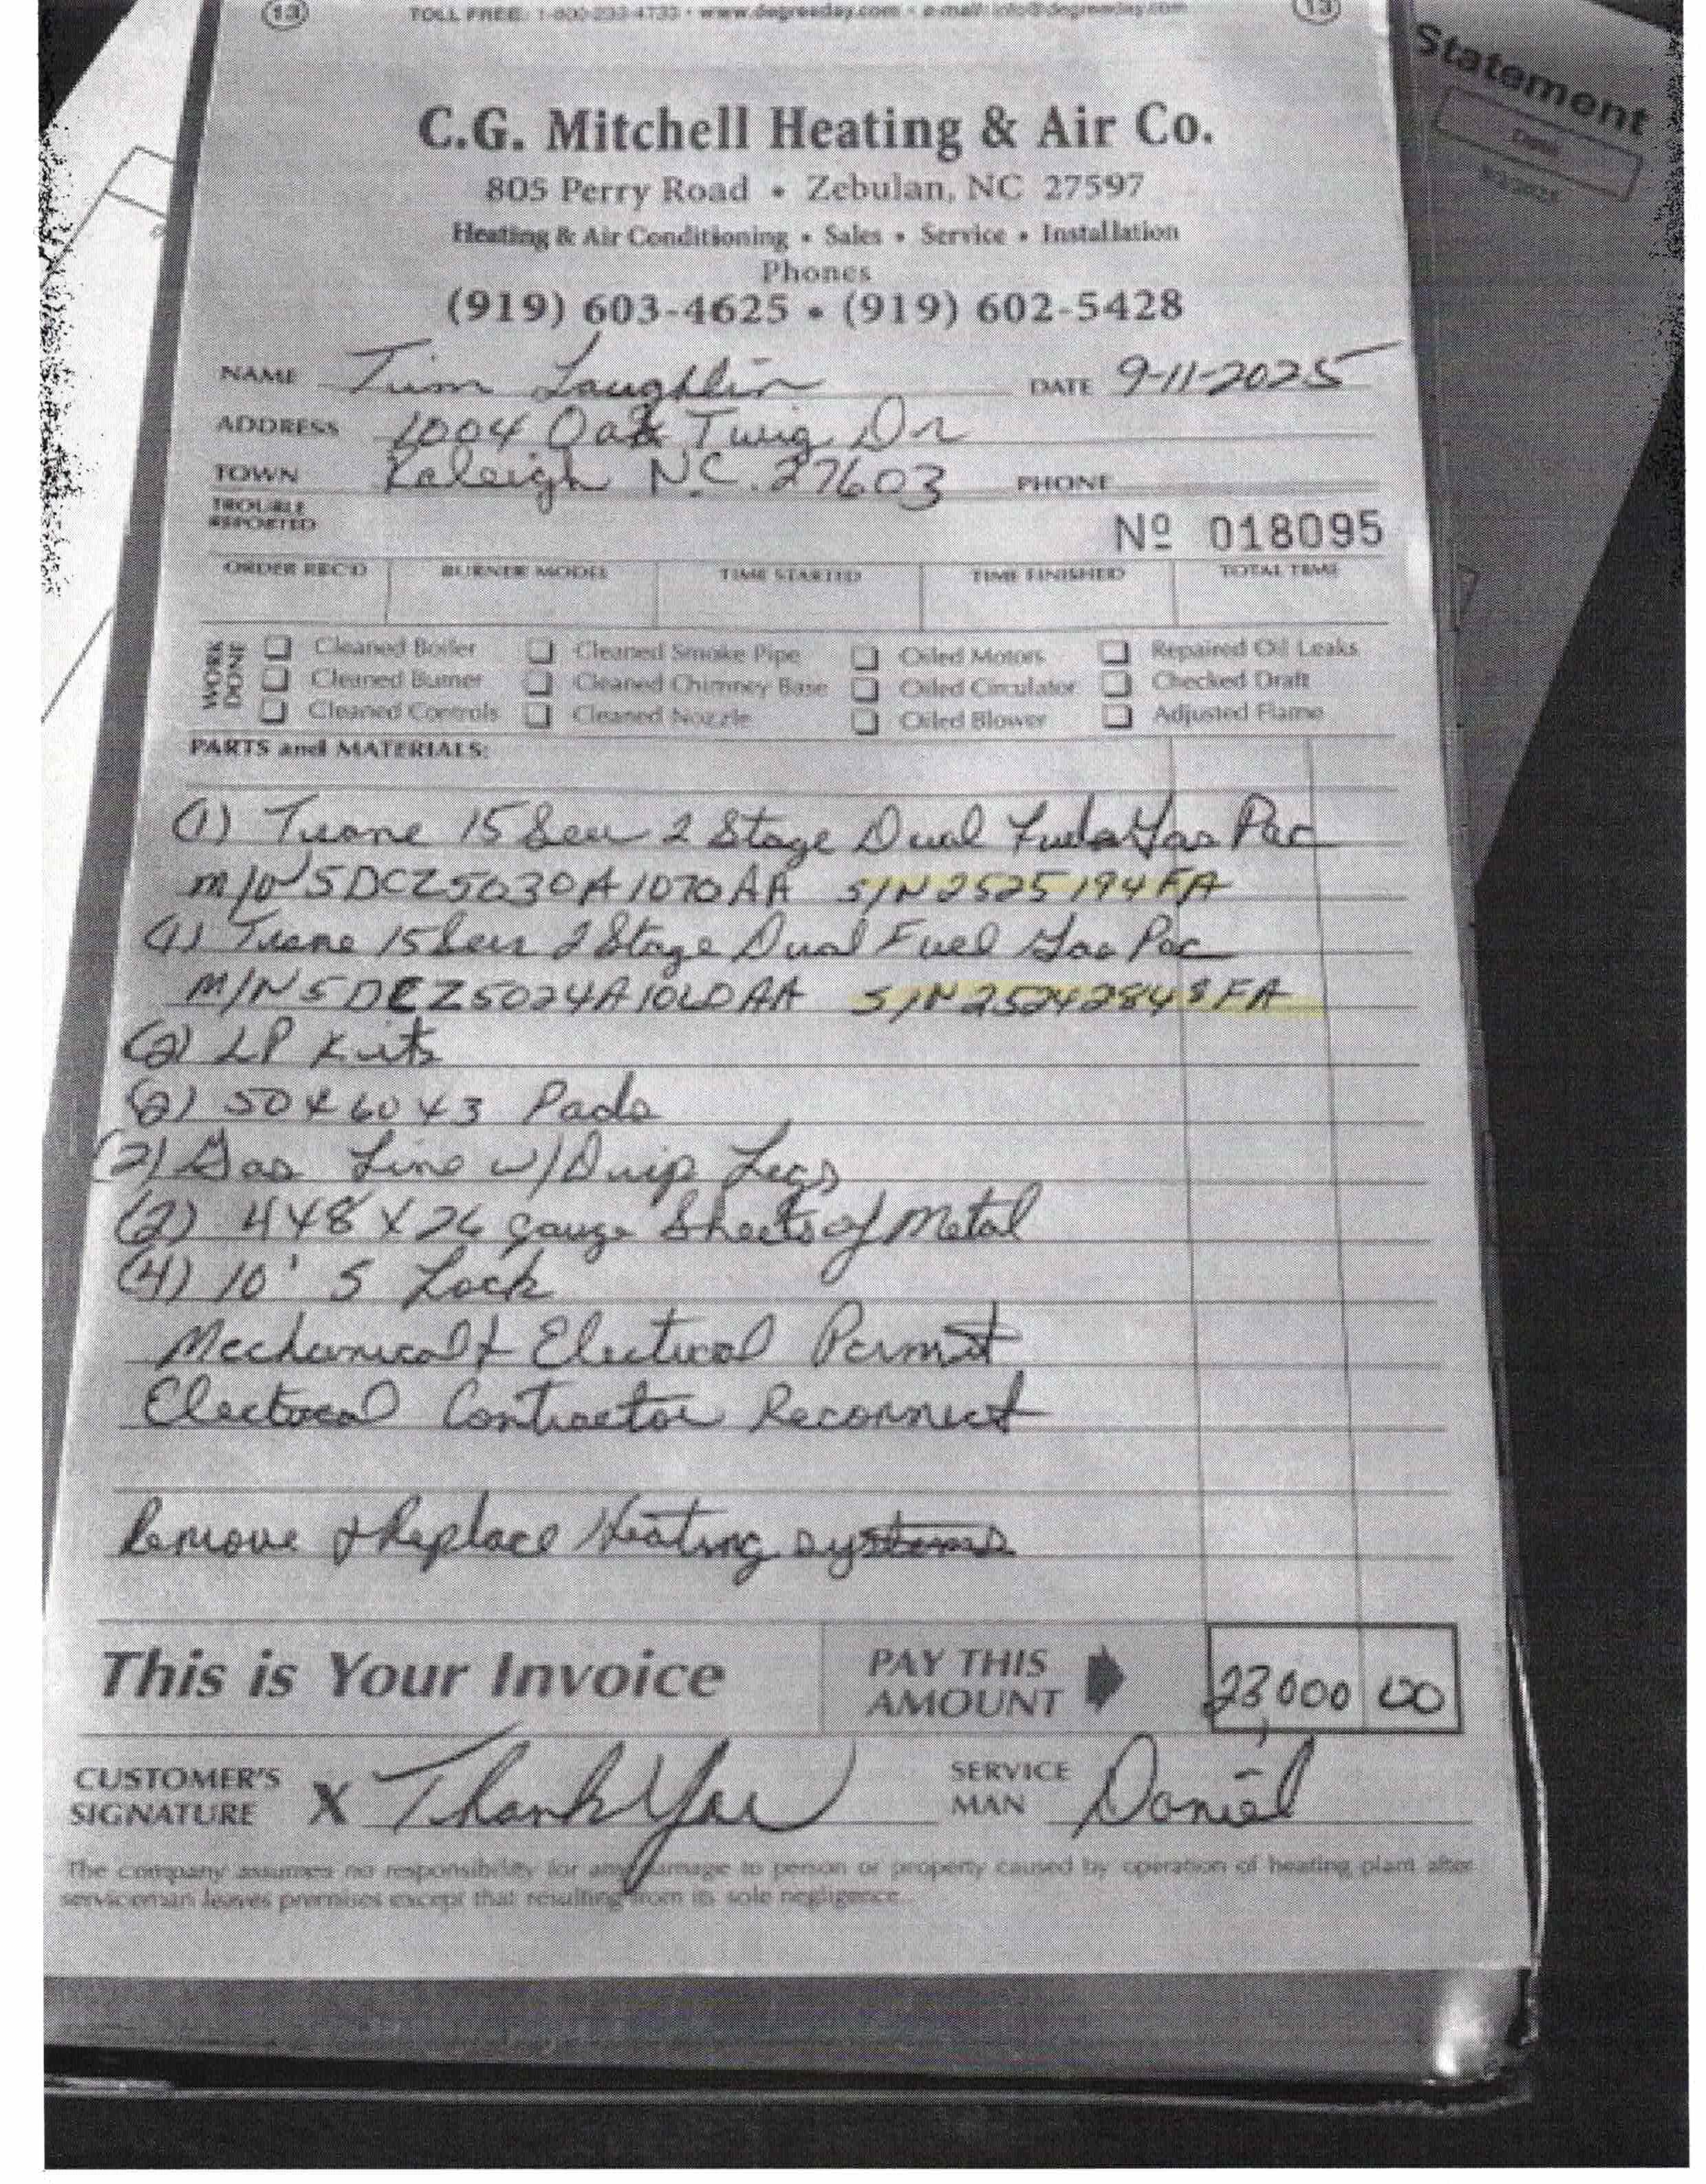 13 TOLL FREE: 1-800-233-4733 • www.degreeday.com • e-mail: info@degreeday.com 13
Statement
Date
C.G. Mitchell Heating & Air Co.
805 Perry Road • Zebulan, NC 27597
Heating & Air Conditioning • Sales • Service • Installation
Phones
(919) 603-4625 • (919) 602-5428
NAME Tim Laughlin DATE 9-11-2025
ADDRESS 1004 Oak Twig Dr
TOWN Raleigh N.C. 27603 PHONE
TROUBLE REPORTED
Nº 018095
ORDER REC'D BURNER MODEL TIME STARTED TIME FINISHED TOTAL TIME
WORK DONE
Cleaned Boiler Cleaned Smoke Pipe Oiled Motors Repaired Oil Leaks
Cleaned Burner Cleaned Chimney Base Oiled Circulator Checked Draft
Cleaned Controls Cleaned Nozzle Oiled Blower Adjusted Flame
PARTS and MATERIALS:
(1) Trane 15 Seer 2 Stage Dual Fuel Gas Pac
M/N 5DCZ5030A1070AA S/N 2525194FA
(1) Trane 15 Seer 2 Stage Dual Fuel Gas Pac
M/N 5DCZ5024A1060AA S/N 25242848FA
(2) LP Kits
(2) 50x60x3 Pads
(2) Gas Line w/ Drip Legs
(2) 4x8 x 26 gauge Sheets of Metal
(4) 10' S Lock
Mechanical & Electrical Permit
Electrical Contractor Reconnect
Remove & Replace Heating systems
This is Your Invoice PAY THIS AMOUNT 23,000 00
CUSTOMER'S SIGNATURE X Thank You SERVICE MAN Daniel
The company assumes no responsibility for any damage to person or property caused by operation of heating plant after
serviceman leaves premises except that resulting from its sole negligence.